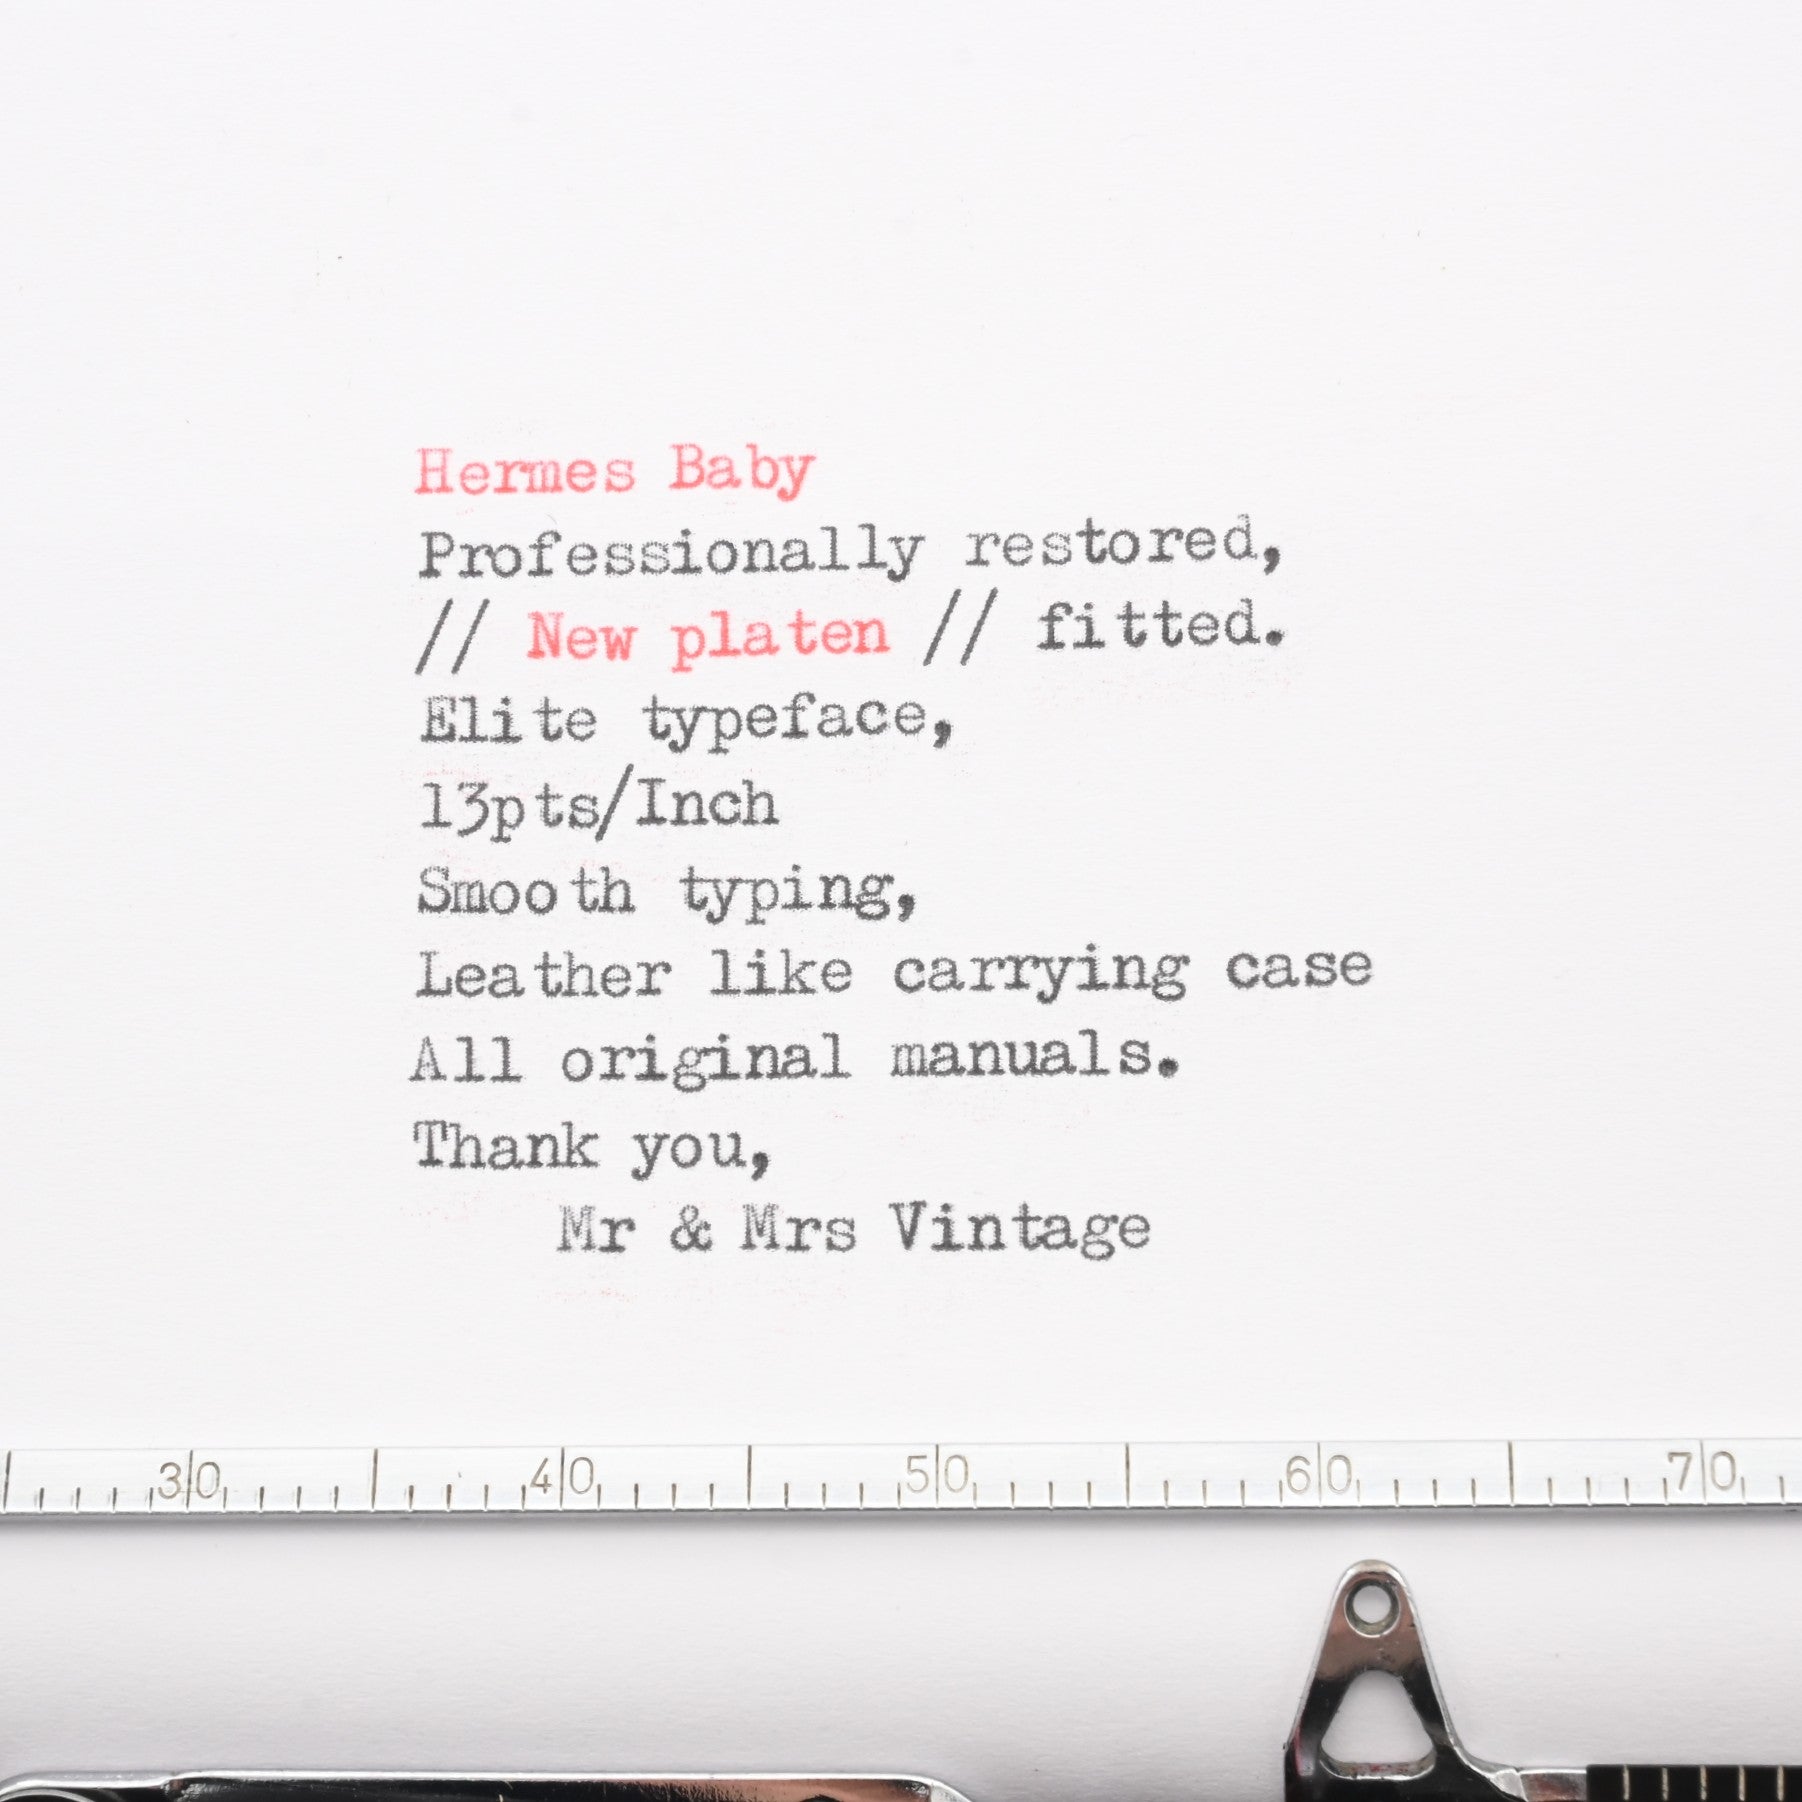 Hermes Baby
Professionally restored,
// New platen // fitted.
Elite typeface,
13pts/Inch
Smooth typing,
Leather like carrying case
All original manuals.
Thank you,
Mr & Mrs Vintage
30 40 50 60 70